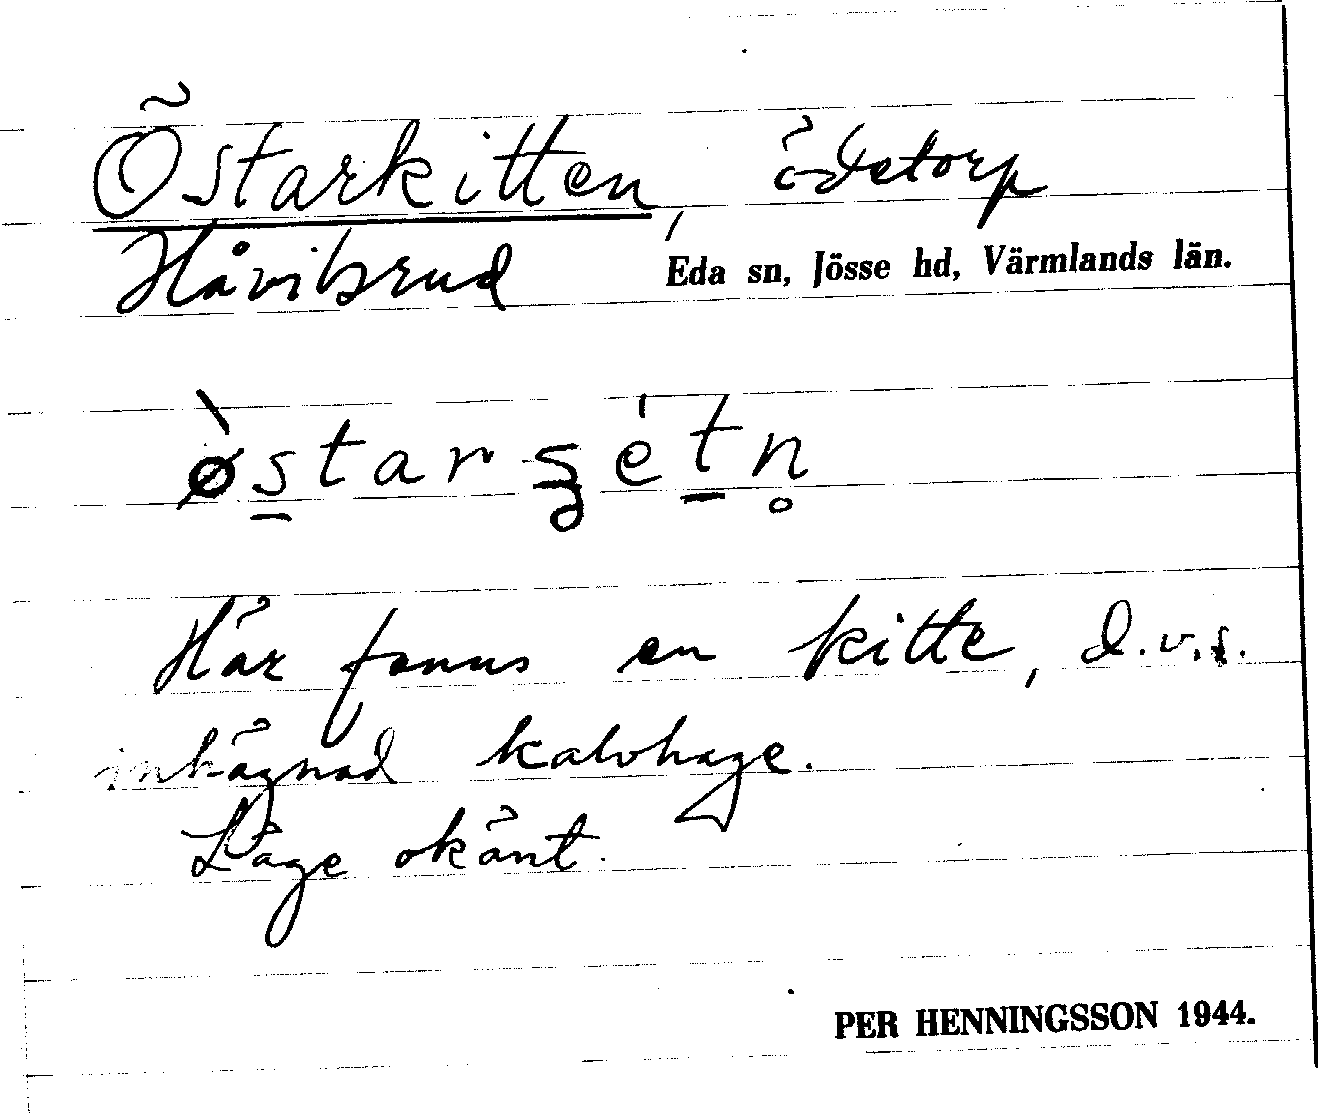 Östarkitten, ödetorp
Håvilsrud Eda sn, Jösse hd, Värmlands län.
Här fanns en kitte, d.v.s.
inhägnad kalvhage.
Läge okänt.
PER HENNINGSSON 1944.